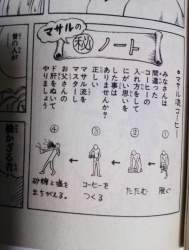 マサルの㊙ノート
◎マサル流コーヒー
みなさんは
間違った
コーヒーの
入れ方をして
にがい思いを
した事は
ありませんか?
正しい
マサル流を
マスターし
お父さんの
ド肝をぬいて
やりましょう
① 脱ぐ
② たたむ
③ コーヒーを
つくる
④ 砂糖と塩を
まちがえる。